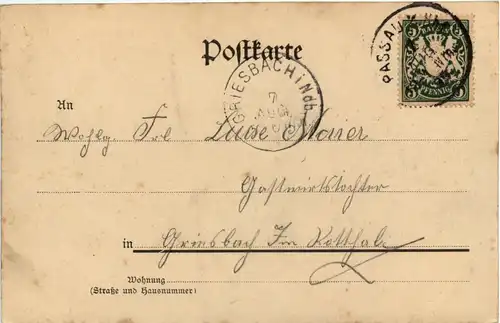 Postkarte
PASSAU
BAYERN
5 PFENNIG 5
GRIESBACH i Ndb.
7
AUG
An
Wohlg. Frl Luise Moser
Gastwirtstochter
in Griesbach Im Rotthal
Wohnung
(Straße und Hausnummer)